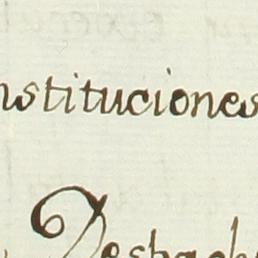 nstituciones
Despach